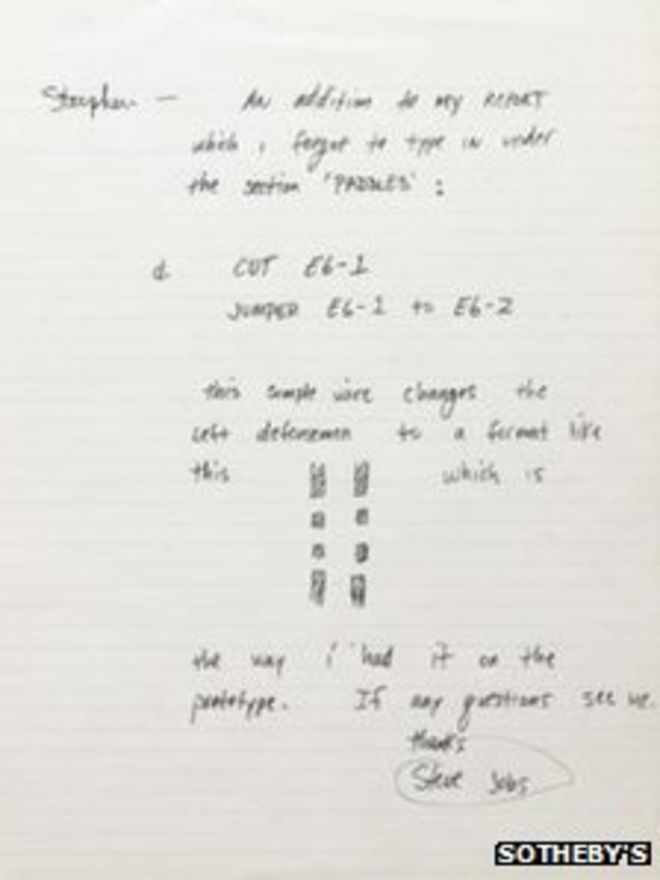 Stephen — An addition to my REPORT
which i forgot to type in under
the section 'PADDLES' :
d. CUT E6-1
JUMPED E6-1 to E6-2
this simple wire changes the
left defensemen to a format like
this which is
the way i had it on the
prototype. If any questions see me.
thanks
Steve Jobs
SOTHEBY'S